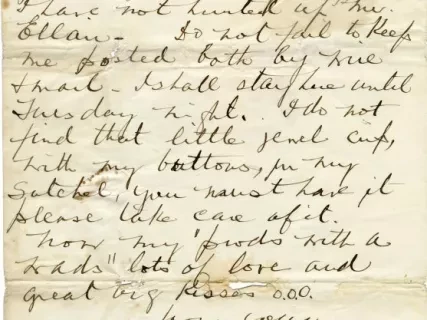 I have not hunted up Mr.
Ellair - Do not fail to keep
me posted both by wire
& mail - I shall stay here until
Tuesday night. I do not
find that little jewel cup,
with my buttons, in my
satchel, you must have it
please take care of it.
Now my "prods with a
wads" lots of love and
great big kisses o.o.o.